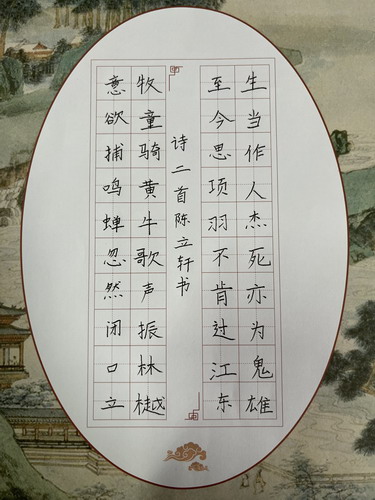 生当作人杰死亦为鬼雄
至今思项羽不肯过江东
诗二首陈立轩书
牧童骑黄牛歌声振林樾
意欲捕鸣蝉忽然闭口立